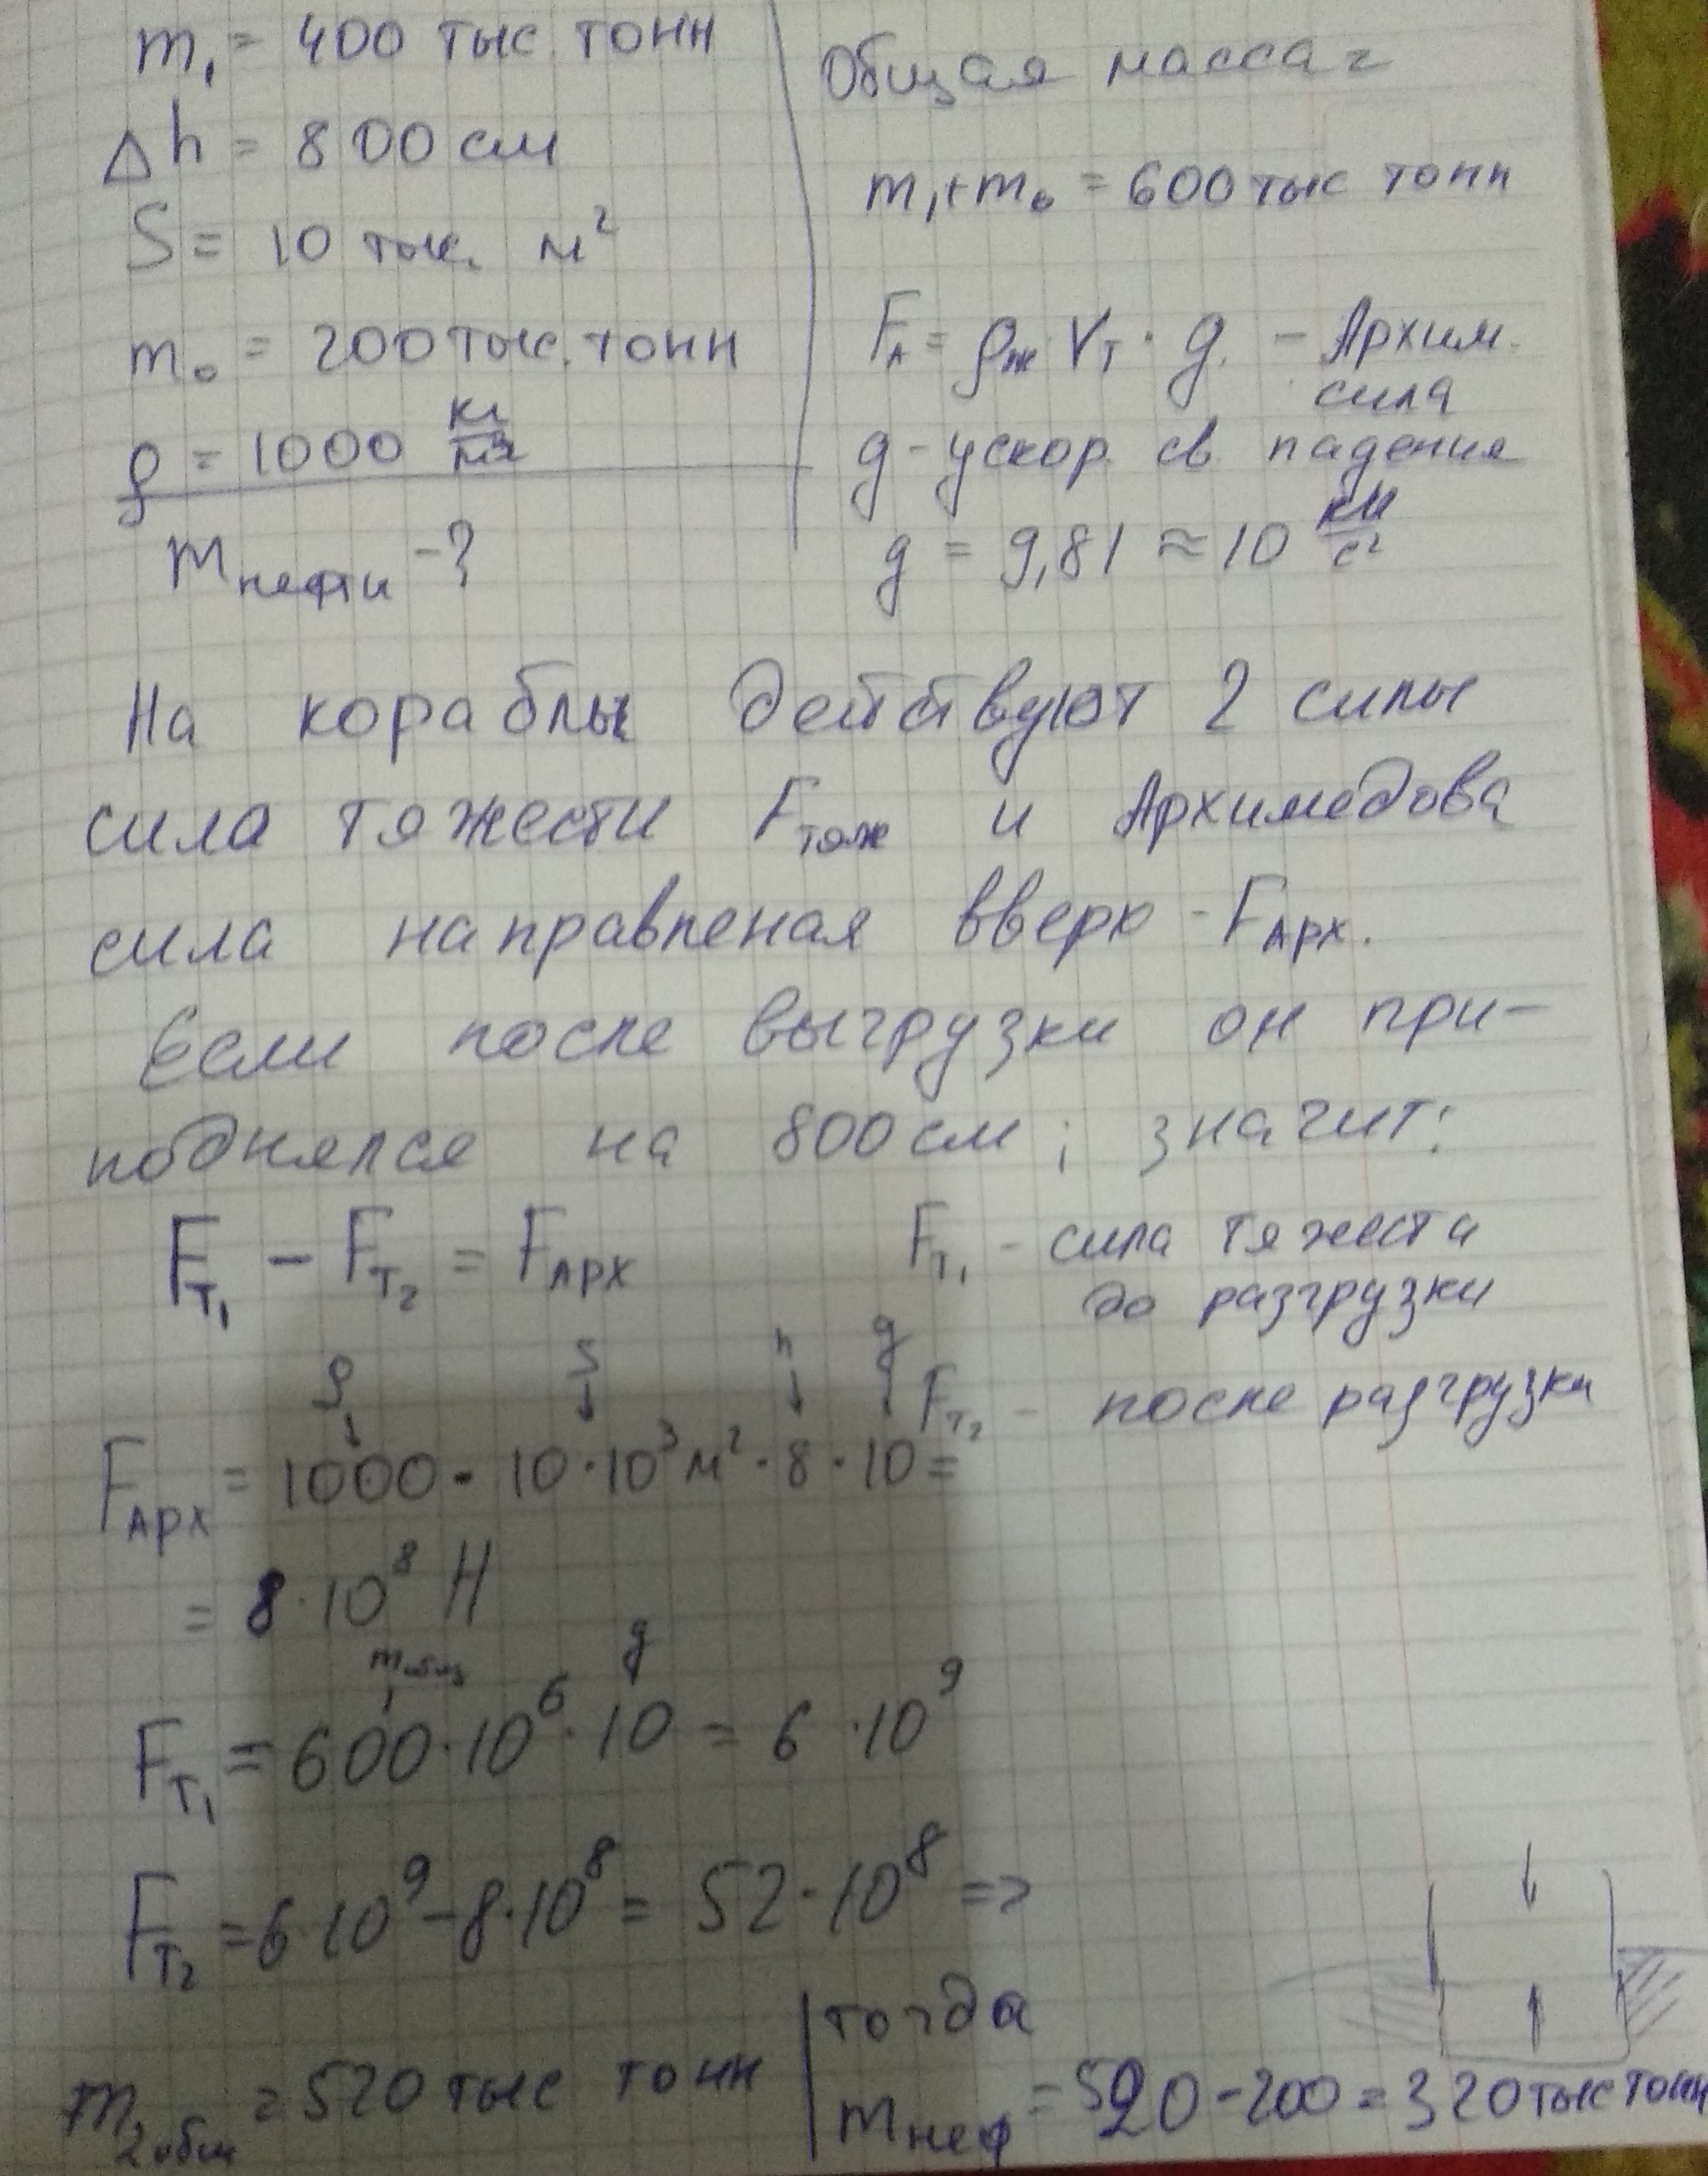 m₁ = 400 тыс. тонн
Δh = 800 см
S = 10 тыс. м²
m₀ = 200 тыс. тонн
ρ = 1000 кг/м³
m нефти - ?
Общая масса =
m₁ + m₀ = 600 тыс тонн
Fᴀ = ρж Vт · g. - Архим. сила
g - ускор. св. падения
g = 9,81 ≈ 10 км/с²
На корабль действуют 2 силы
сила тяжести Fтяж и Архимедова
сила направленая вверх - Fарх.
Если после выгрузки он при-
поднялся на 800 см ; значит:
Fт₁ - Fт₂ = Fарх
Fт₁ - сила тяжести
до разгрузки
Fт₂ - после разгрузки
ρ S h g
Fарх = 1000 · 10 · 10³ м² · 8 · 10 =
= 8 · 10⁸ Н
m общ g
Fт₁ = 600 · 10⁶ · 10 = 6 · 10⁹
Fт₂ = 6 · 10⁹ - 8 · 10⁸ = 52 · 10⁸ =>
m₂ общ = 520 тыс тонн
тогда
m неф = 520 - 200 = 320 тыс тонн